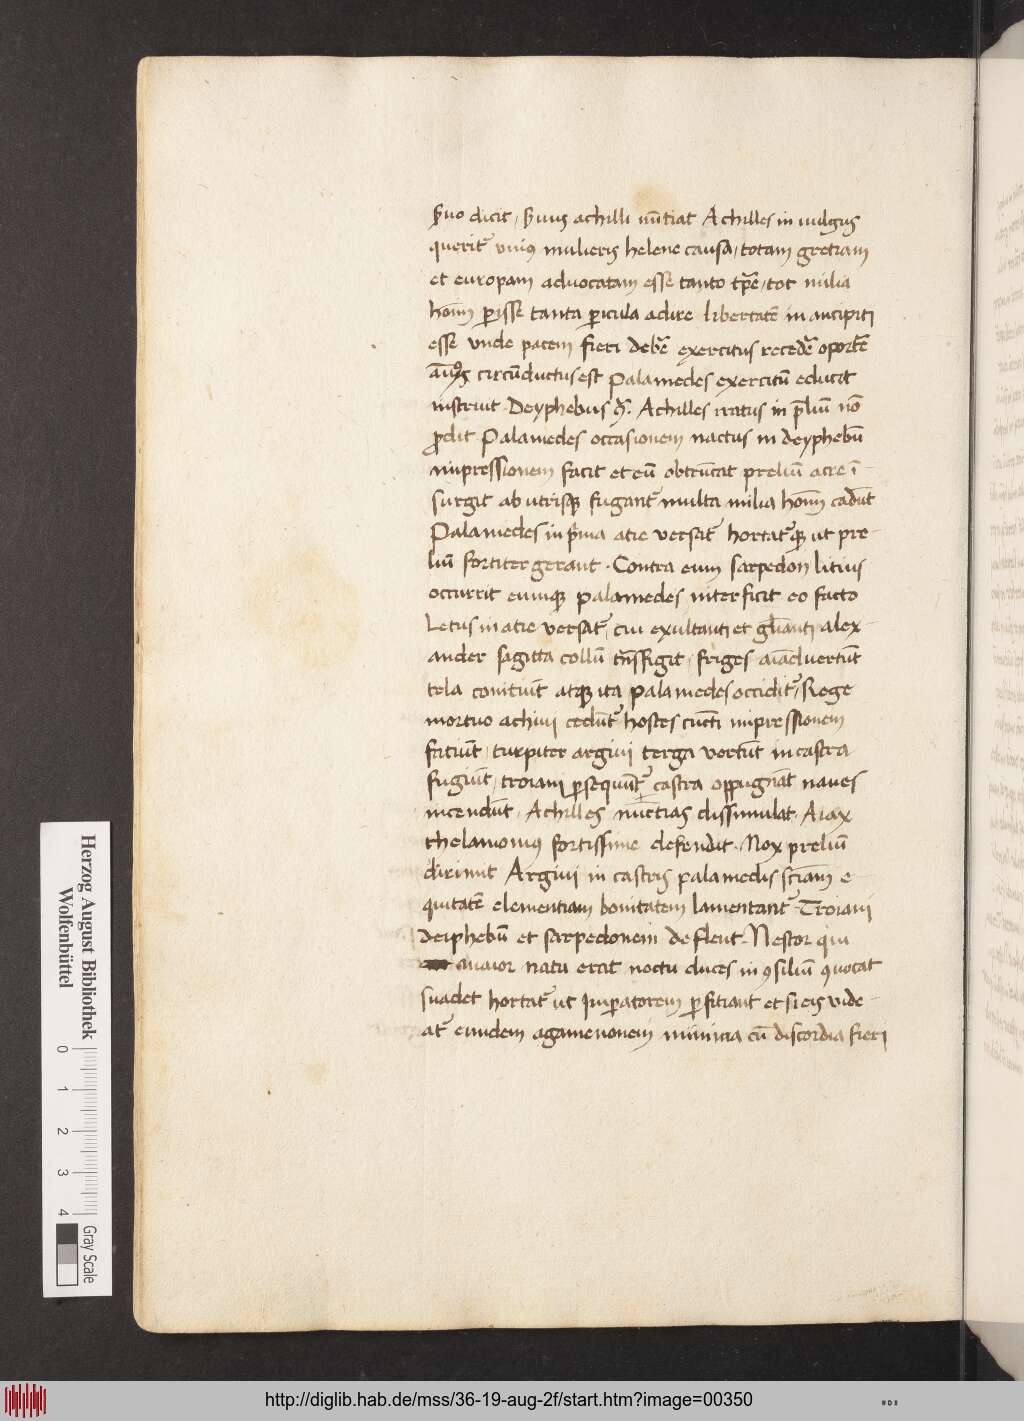 suo dicit, suus achilli nūtiat Achilles in uulgus
querit᷑ vniꝰ mulieris helene causa, totam gretiam
et europam aduocatam esse tanto tp̄e, tot milia
hoīm ꝑisse tanta ꝑicula adire libertatē in ancipiti
esse vnde pacem fieri deb̄e exercitus reced̄e oport̄e
circūductus est Palamedes exercitū educit
instruit. Deyphebus Achilles iratus in p̄liū nō
ꝓdit Palamedes occasionem nactus in deyphebū
impressionem facit et eū obtrūcat preliū acre ī-
surgit ab utrisqꝫ fugant᷑ multa milia hoīm cadūt
Palamedes in pͥma acie versat᷑ hortat᷑qꝫ ut pre-
liū fortiter gerant. Contra eum sarpedon litius
occurrit eumqꝫ palamedes interficit eo facto
Letus in acie versat᷑, cui exultanti et gl̄ianti alex-
ander sagitta collū tn̄sfigit, friges aīaduertūt
tela conitiūt atqꝫ ita palamedes occidit᷑, Rege
mortuo achiui cedūt᷑ hostes cūcti impressionem
fatiūt, turpiter argiui terga vertūt in castra
fugiūt, troiani ꝑsequūt᷑ castra oppugnāt naues
incendūt, Achilles nūctias dissimulat. Aiax
thelamoniꝰ fortissime defendit. Nox preliū
dirimit Argiui in castris palamedis sciām e-
quitatē clementiam bonitatem lamentant᷑. Troiani
deiphebū et sarpedonem deflent. Nestor qui
maior natu erat noctu duces in ꝯsiliū ꝯuocat
suadet hortat᷑ ut imꝑatorem ꝑfitiant et si eis vide-
at᷑ eundem agamenonem minima cū discordia fieri
Herzog August Bibliothek
Wolfenbüttel
0 1 2 3 4
Gray Scale
http://diglib.hab.de/mss/36-19-aug-2f/start.htm?image=00350